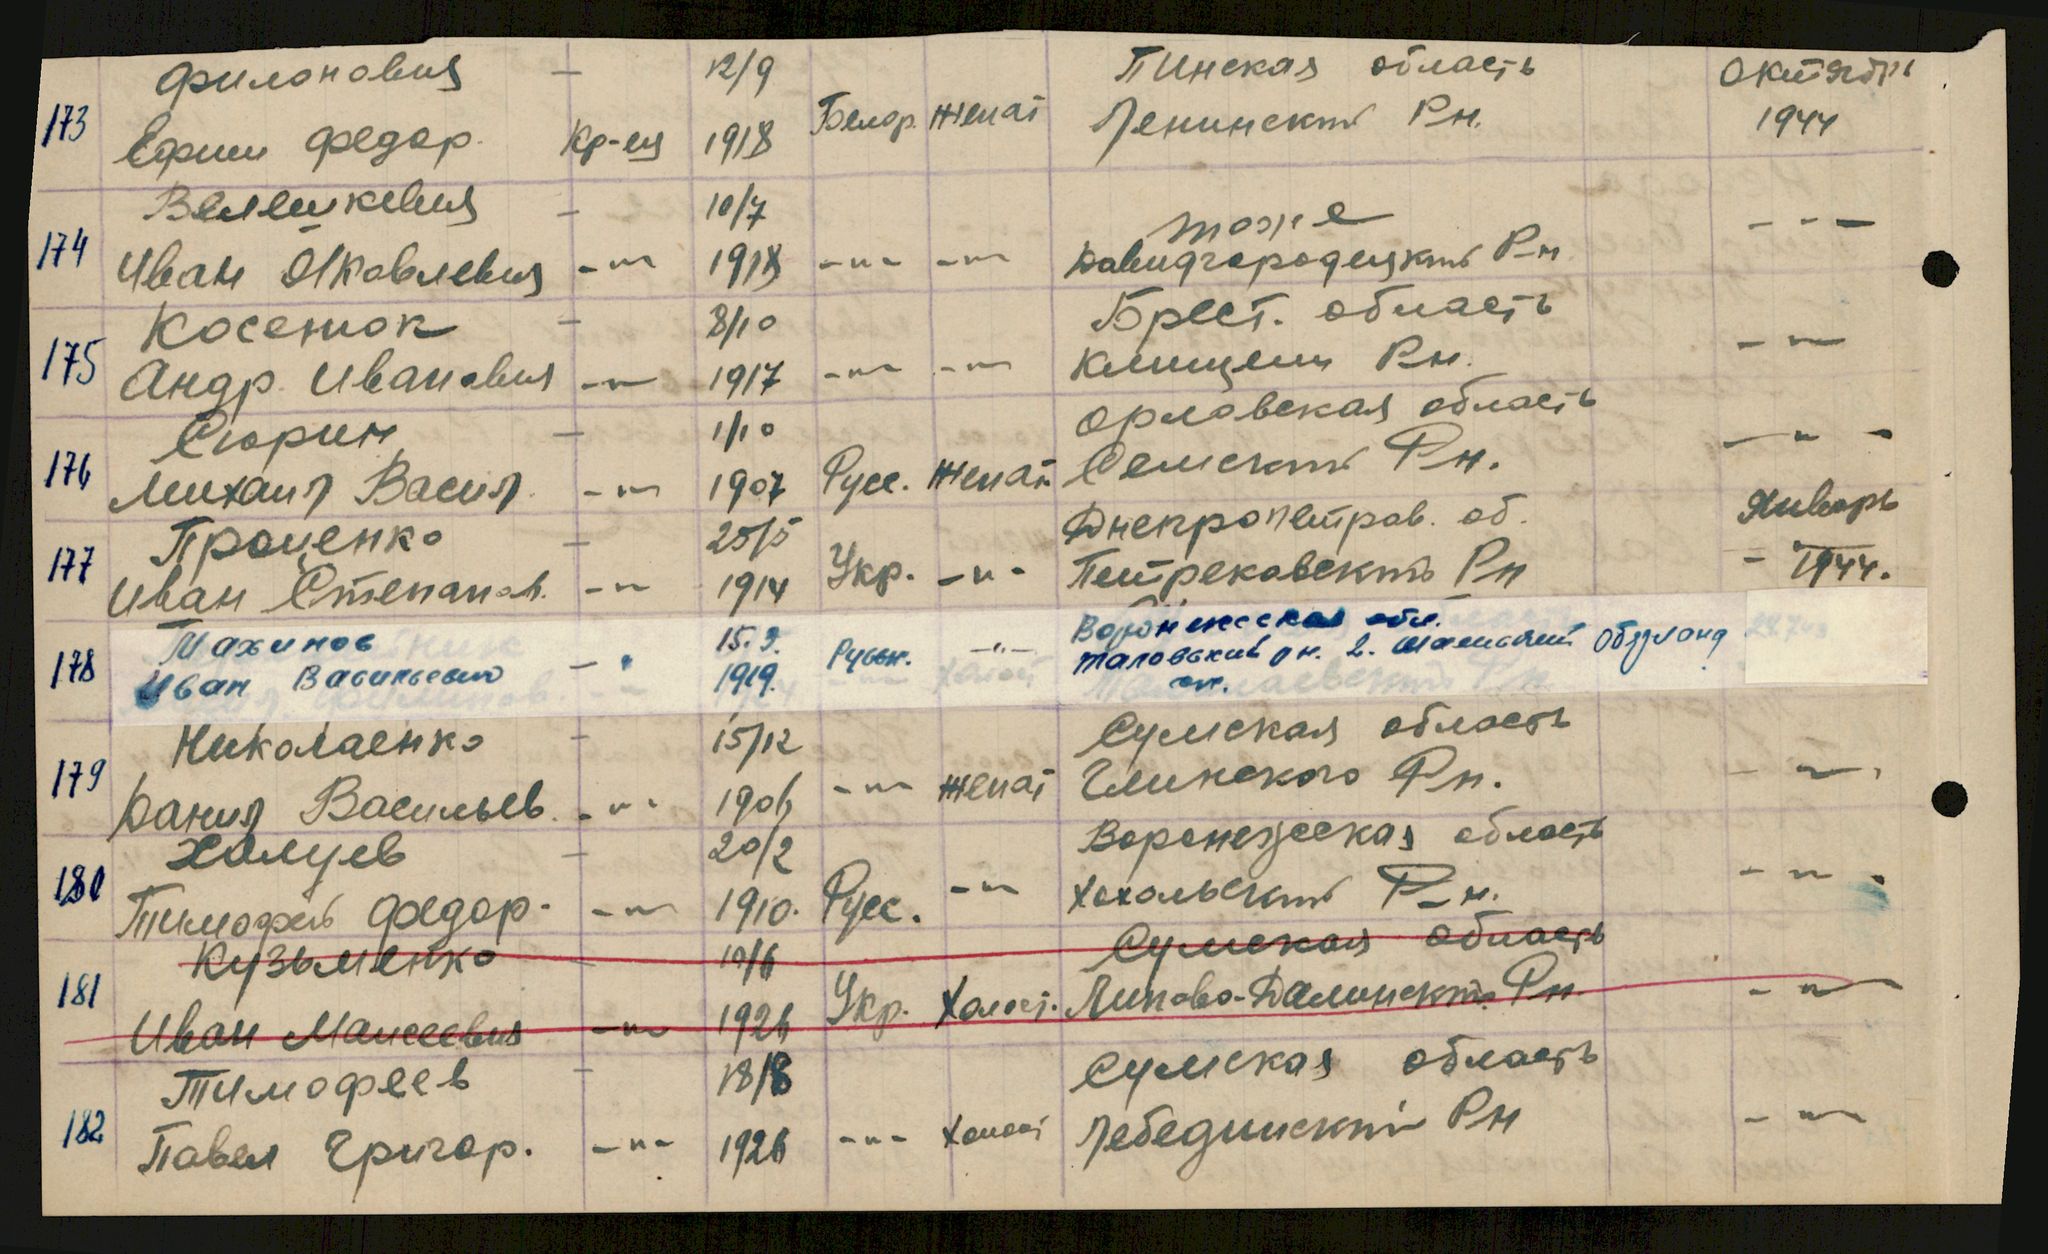 Филонович — 12/9 Пинская область Октябрь
173 Ефим Федор. Кр-ец 1918 Белор. Женат Ленинский Р-н. 1944
Велешкевич — 10/7 тоже – – –
174 Иван Яковлевич -"- 1918 -"- -"- Давидгородецкий Р-н
Косенюк — 8/10 Брест. область
175 Андр. Иванович -"- 1917 -"- -"- Клищели Р-н. -"-
Сюрин — 1/10 Орловская область
176 Михаил Васил. -"- 1907 Русс. Женат Р-н. -"-
Проценко — 25/5 Днепропетров. об. Январь
177 Иван Степанов. -"- 1914 Укр. -"- Петрековский Р-н – 1944.
Махинов 15.9. Воронежская обл.
178 Иван Васильевич -"- 1919. Русск. -"- Таловский рн. 2.
Николаенко — 15/12 Сумская область
179 Данил Васильев. -"- 1906 -"- женат Глинского Р-н. -"-
Халуев — 20/2 Воронежская область
180 Тимофей Федор. -"- 1910. Русс. -"- Хохольский Р-н. -"-
Кузьменко — 10/6 Сумская область
181 Иван Моисеевич -"- 1926 Укр. Холост. Липово-Далинский Р-н. -"-
Тимофеев — 18/8 Сумская область
182 Павел Григор. -"- 1926 -"- холост Лебединский Р-н -"-